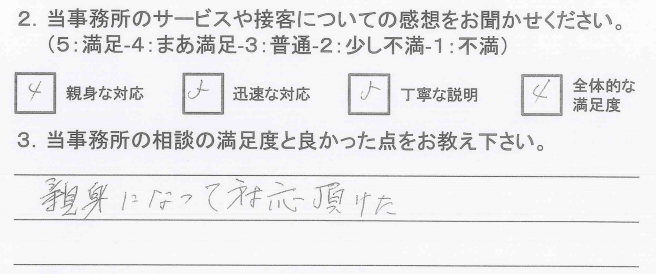 2. 当事務所のサービスや接客についての感想をお聞かせください。
(5:満足-4:まあ満足-3:普通-2:少し不満-1:不満)
4 親身な対応 5 迅速な対応 5 丁寧な説明 4 全体的な満足度
3. 当事務所の相談の満足度と良かった点をお教え下さい。
親身になって対応頂けた